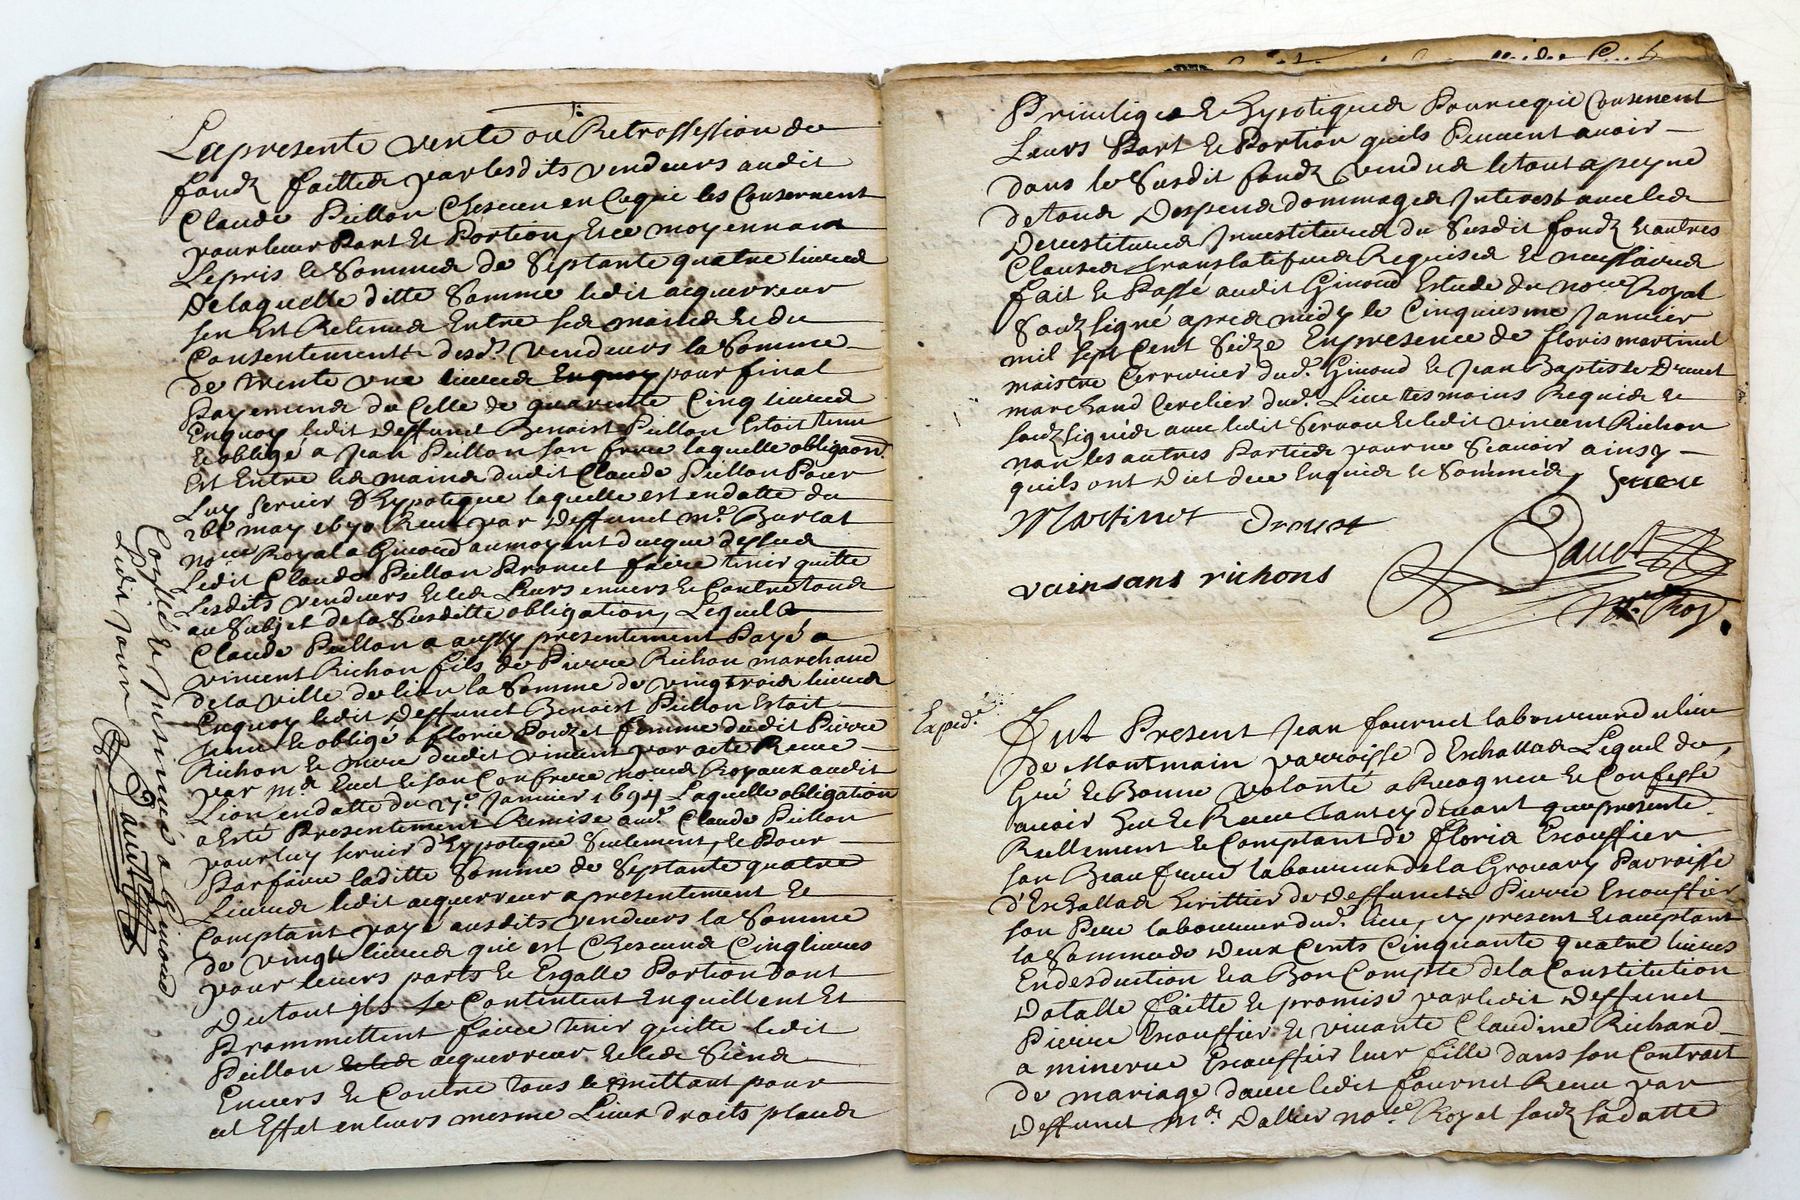 La presente vente ou Retrossession de
fondz faitte par lesdits vendeurs audit
Claude Pullon Chescun en Ce qui les Consernent
pour leur Part Et Portion, Et ce moyennant
le pris Et Somme de Septante quatre livres
De laquelle ditte Somme ledit acquerreur
sen Est Retenue Entre ses mains Et du
Consentement desd. vendeurs la Somme
de trente une livres pour final
Payement du Celle de quarante Cinq livres
En quoy ledit deffunct Benoist Pullon Estoit tenu
Et obligé a Jean Pullon son frere laquelle obligaon
Est Entre les mains dudit Claude Pullon Pour
Luy Servir d'Hypoteque laquelle est en datte du
may 1670 Receu par deffunct Me. Burlat
nore Royal a Givord au moyent du que dessus
ledit Claude Pullon Promet faire tenir quitte
lesdits vendeurs Et les Leurs envers Et Contre tous
au Subjet de la Susditte obligation, Lequel
Claude Pullon a aussy presentement Payé a
vincent Richon fils de Pierre Richon marchand
de la ville de lion la Somme de vingt trois livres
En quoy ledit deffunct Benoist Pullon Estoit
tenu Et obligé a Florie femme dudit Pierre
Richon Et mere dudit vincent par acte Receu
par Me Et son Confrere nores Royaux audit
Lion en datte du 27e Janvier 1694 Laquelle obligation
a Esté Presentement Remise aud. Claude Pullon
pour luy servir d'Hypoteque Seulement, Et Pour
Parfaire laditte Somme de Septante quatre
Livres ledit acquerreur a presentement Et
Comptant payé ausdits vendeurs la Somme
de vingt livres qui est Chescune Cinq livres
pour leurs parts Et Esgalle Portion Dont
Du tout ils se Contentent En quittent Et
Promettent faire tenir quitte ledit
Pullon acquerreur Et les Siens
Envers Et Contre tous Se mettant pour
cet Effet en leurs mesme Lieux droits place
Coppié Et Insinué a Givord
Ledit Jour
Dauct
Privilige Et Hypotiques Pour ce qui Consernent
Leurs Part Et Portion quils Peuvent avoir
dans le Susdit fondz vendus le tout a peyne
de tous Despens dommages Interest avec les
Devestitures Investitures du Susdit fondz Et autres
Clauses translatifves Requises Et necessaires
fait Et Passé audit Givord Estude du nore Royal
Soubzsigné apres midy le Cinquiesme Janvier
mil sept Cent Seize En presence de floris martinet
maistre Cerrurier dud. Givord Et Jean Baptiste Druet
marchand Cerclier dud. Lieu tesmoins Requis Et
soubzsignés avec ledit Et ledit vincent Richon
non les autres Parties pour ne Scavoir ainsy
quils ont Dict de ce Enquis Et Sommés,
Martinet Druet
vainsans richons
Dauct
nore Roy.
Exped.e
Fut Present Jean fournet laboureur du lieu
de Montmain parroisse d'Eschallas Lequel de,
Gré Et Bonne volonté a Recogneu Et Confessé
avoir heu Et Receu tant cy devant que presente
Reellement Et Comptant de Floris Escouffier
son Beau frere laboureur de la Parroisse
d'Eschallas herittier de deffunct Pierre Escouffier
son Pere laboureur dud. lieu, cy present Et acceptant
la Somme de Deux Cents Cinquante quatre livres
En desduction Et a Bon Compte de la Constitution
Dotalle faitte Et promise par ledit deffunct
Pierre Escouffier Et vivante Claudine Richard
a minerve Escouffier leur fille dans son Contract
de mariage d'avec ledit fournet Receu par
Deffunct Me. Dallier nore. Royal soubz sa datte